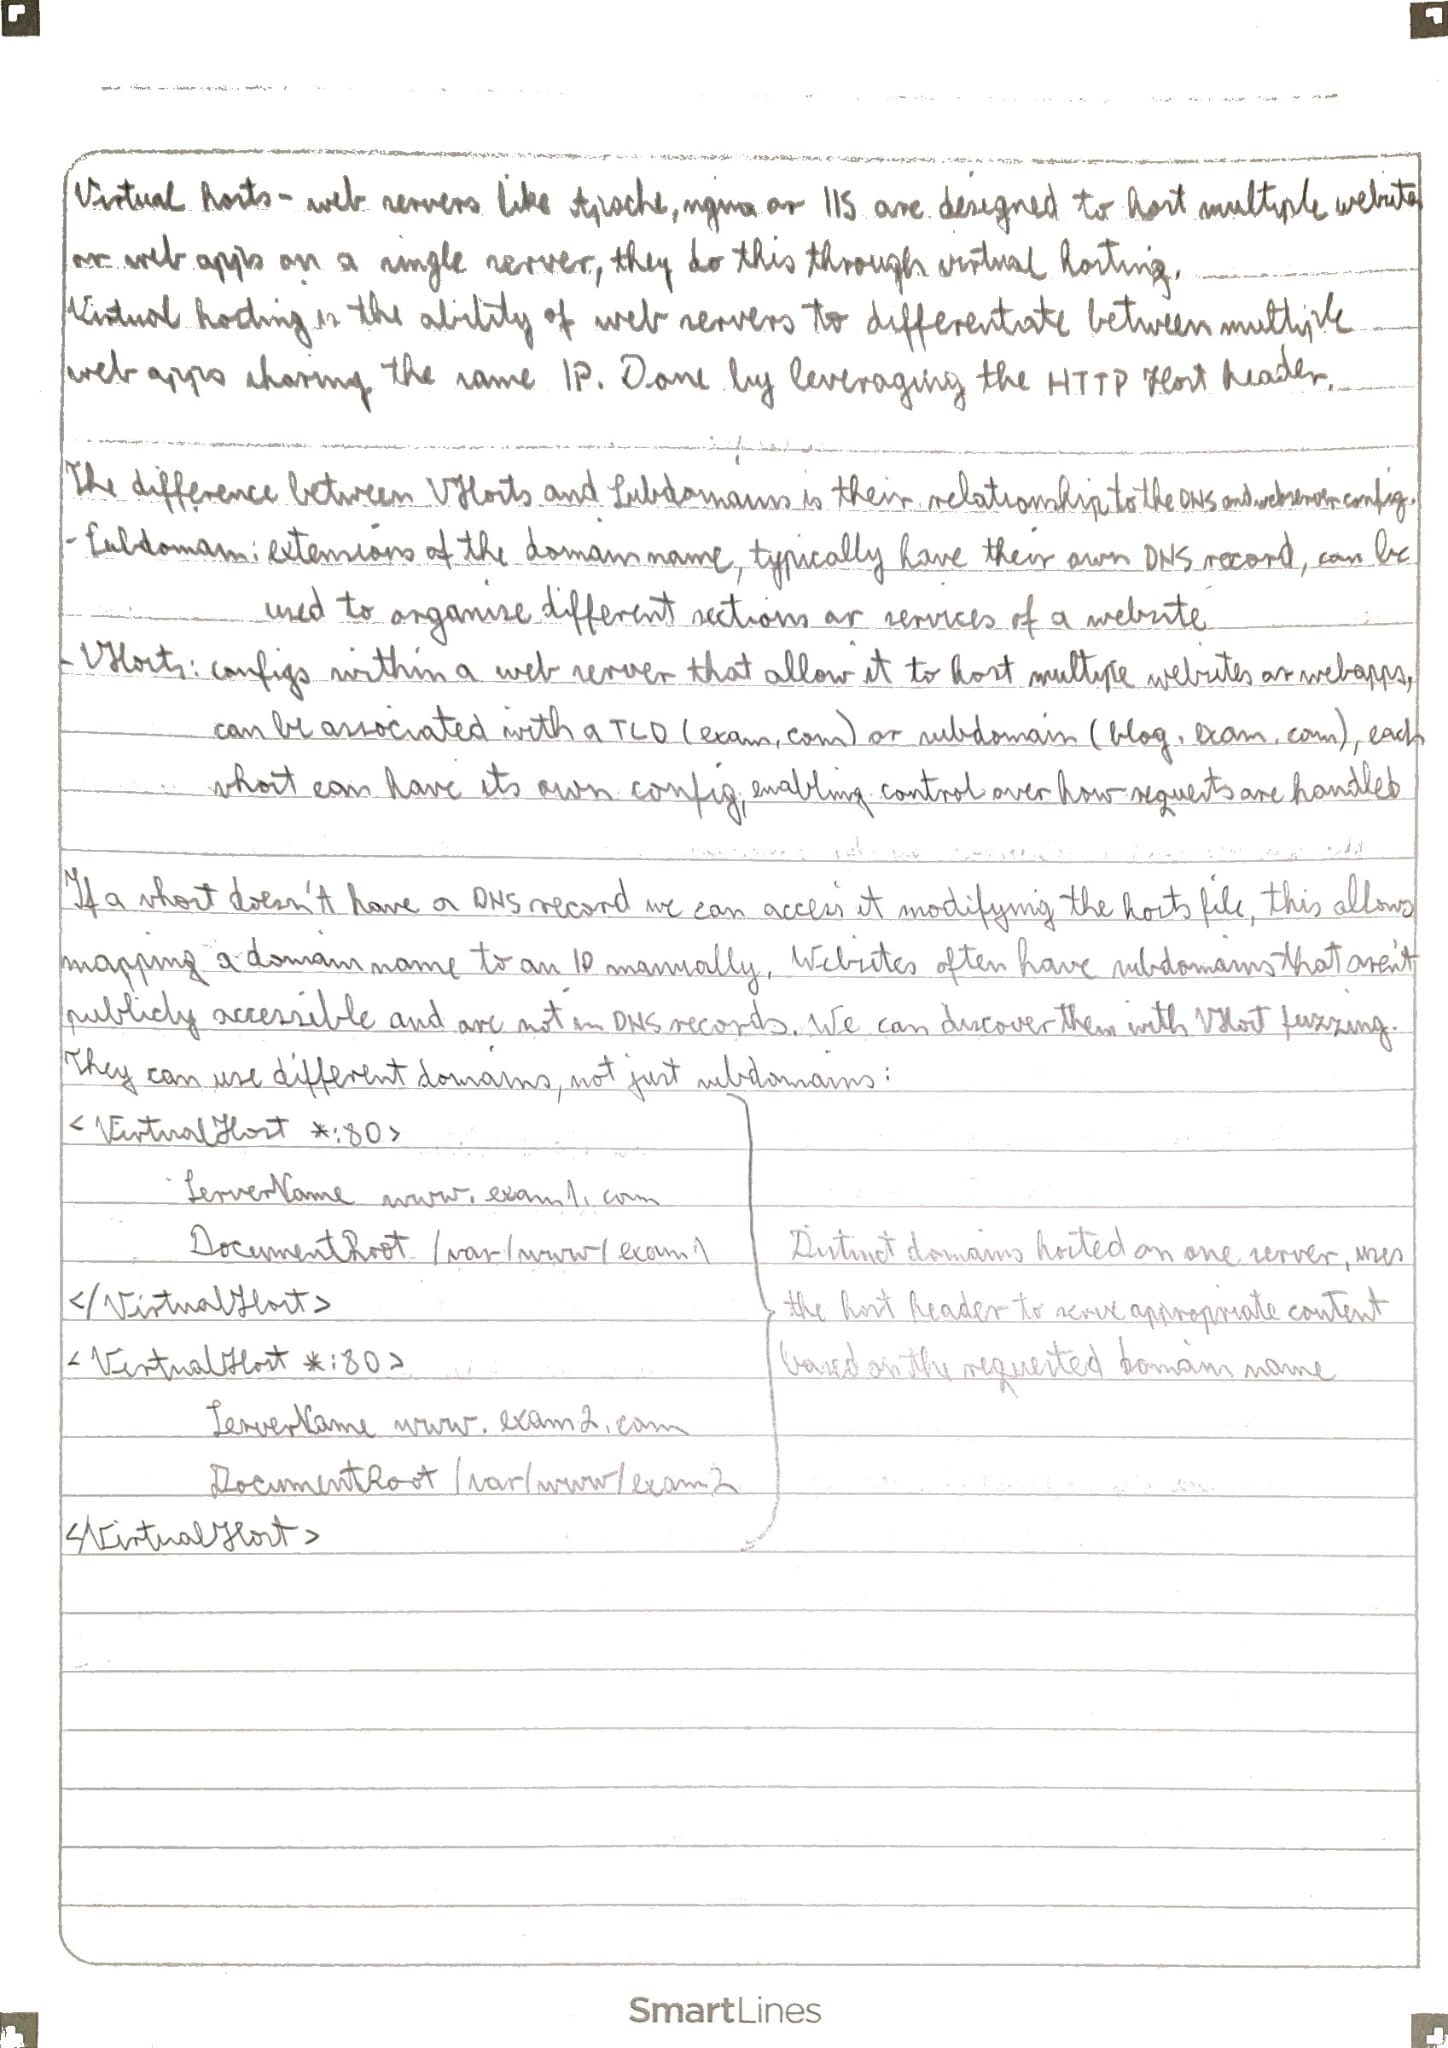 Virtual hosts - web servers like Apache, nginx or IIS are designed to host multiple websites
or web apps on a single server, they do this through virtual hosting.
Virtual hosting is the ability of web servers to differentiate between multiple
web apps sharing the same IP. Done by leveraging the HTTP Host header.
The difference between VHosts and Subdomains is their relationship to the DNS and webserver config.
- Subdomain: extensions of the domain name, typically have their own DNS record, can be
used to organise different sections or services of a website
- VHosts: configs within a web server that allow it to host multiple websites or webapps,
can be associated with a TLD (exam.com) or subdomain (blog.exam.com), each
vhost can have its own config, enabling control over how requests are handled
If a vhost doesn't have a DNS record we can access it modifying the hosts file, this allows
mapping a domain name to an IP manually. Websites often have subdomains that aren't
publicly accessible and are not in DNS records. We can discover them with VHost fuzzing.
They can use different domains, not just subdomains:
<VirtualHost *:80>
ServerName www.exam1.com
DocumentRoot /var/www/exam1
</VirtualHost>
<VirtualHost *:80>
ServerName www.exam2.com
DocumentRoot /var/www/exam2
</VirtualHost>
Distinct domains hosted on one server, uses
the host header to serve appropriate content
based on the requested domain name
SmartLines